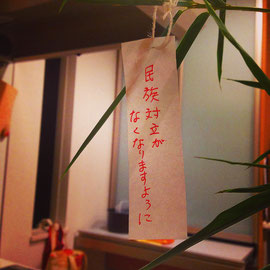 民族対立が
なくなりますように